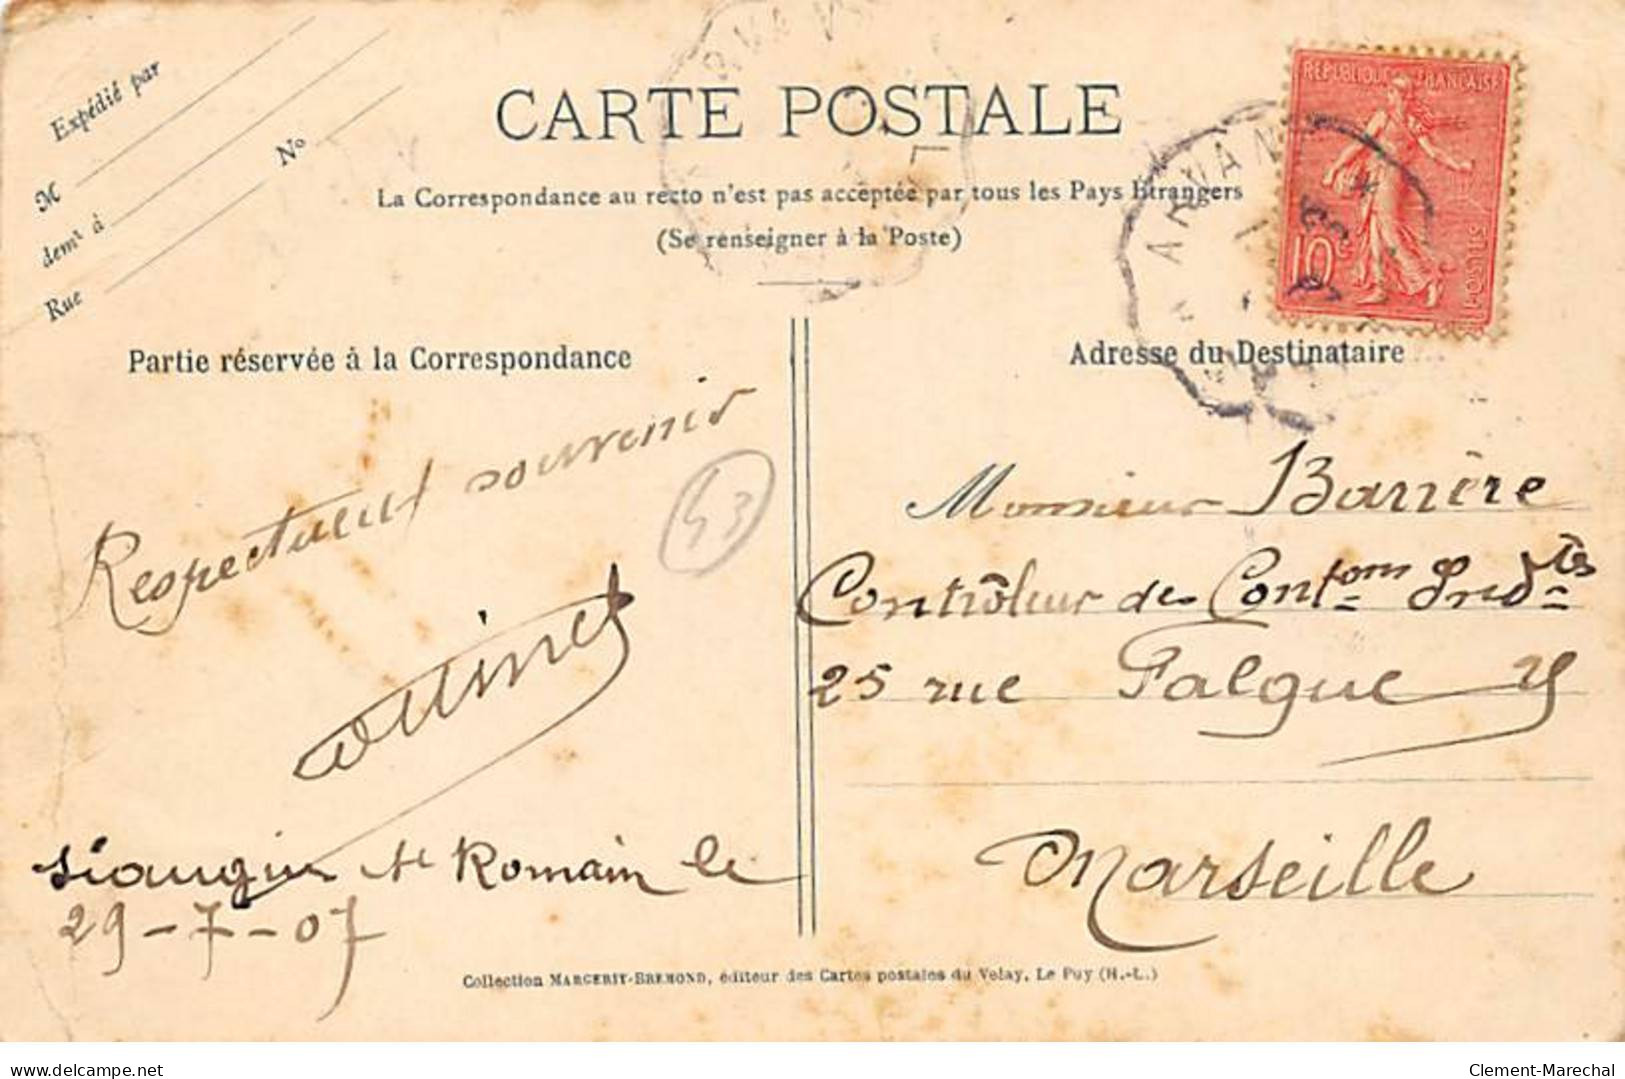 Expédié par
M
demt à
Rue
No
CARTE POSTALE
La Correspondance au recto n'est pas acceptée par tous les Pays Etrangers
(Se renseigner à la Poste)
RÉPUBLIQUE FRANÇAISE
10c
POSTES
ARVAN
Partie réservée à la Correspondance
Adresse du Destinataire
Respectueux souvenir
43
St Romain le
29-7-07
Monsieur Barrère
Contrôleur des Contons Indtes
25 rue Falque
Marseille
Collection MARGERIT-BREMOND, éditeur des Cartes postales du Velay, Le Puy (H.-L.)
delcampe.net
Clement-Marechal